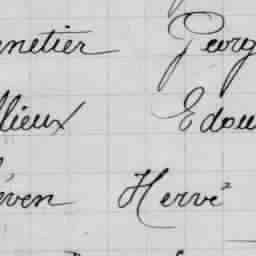 netier Georg
llieux Edou
éven Hervé